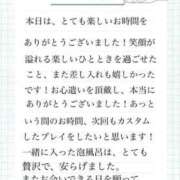 本日は、とても楽しいお時間を
ありがとうございました！笑顔が
溢れる楽しいひとときを過ごせた
こと、また差し入れも嬉しかった
です！お心遣いを頂戴し、本当に
ありがとうございました！あっと
いう間のお時間、次回もカスタム
したプレイをしたいと思います！
一緒に入った泡風呂は、とても
贅沢で、安らげました。
またお会いできる日を願って